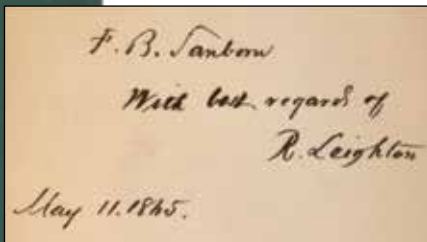 F. B. Sanborn
With best regards of
R. Leighton
May 11. 1865.